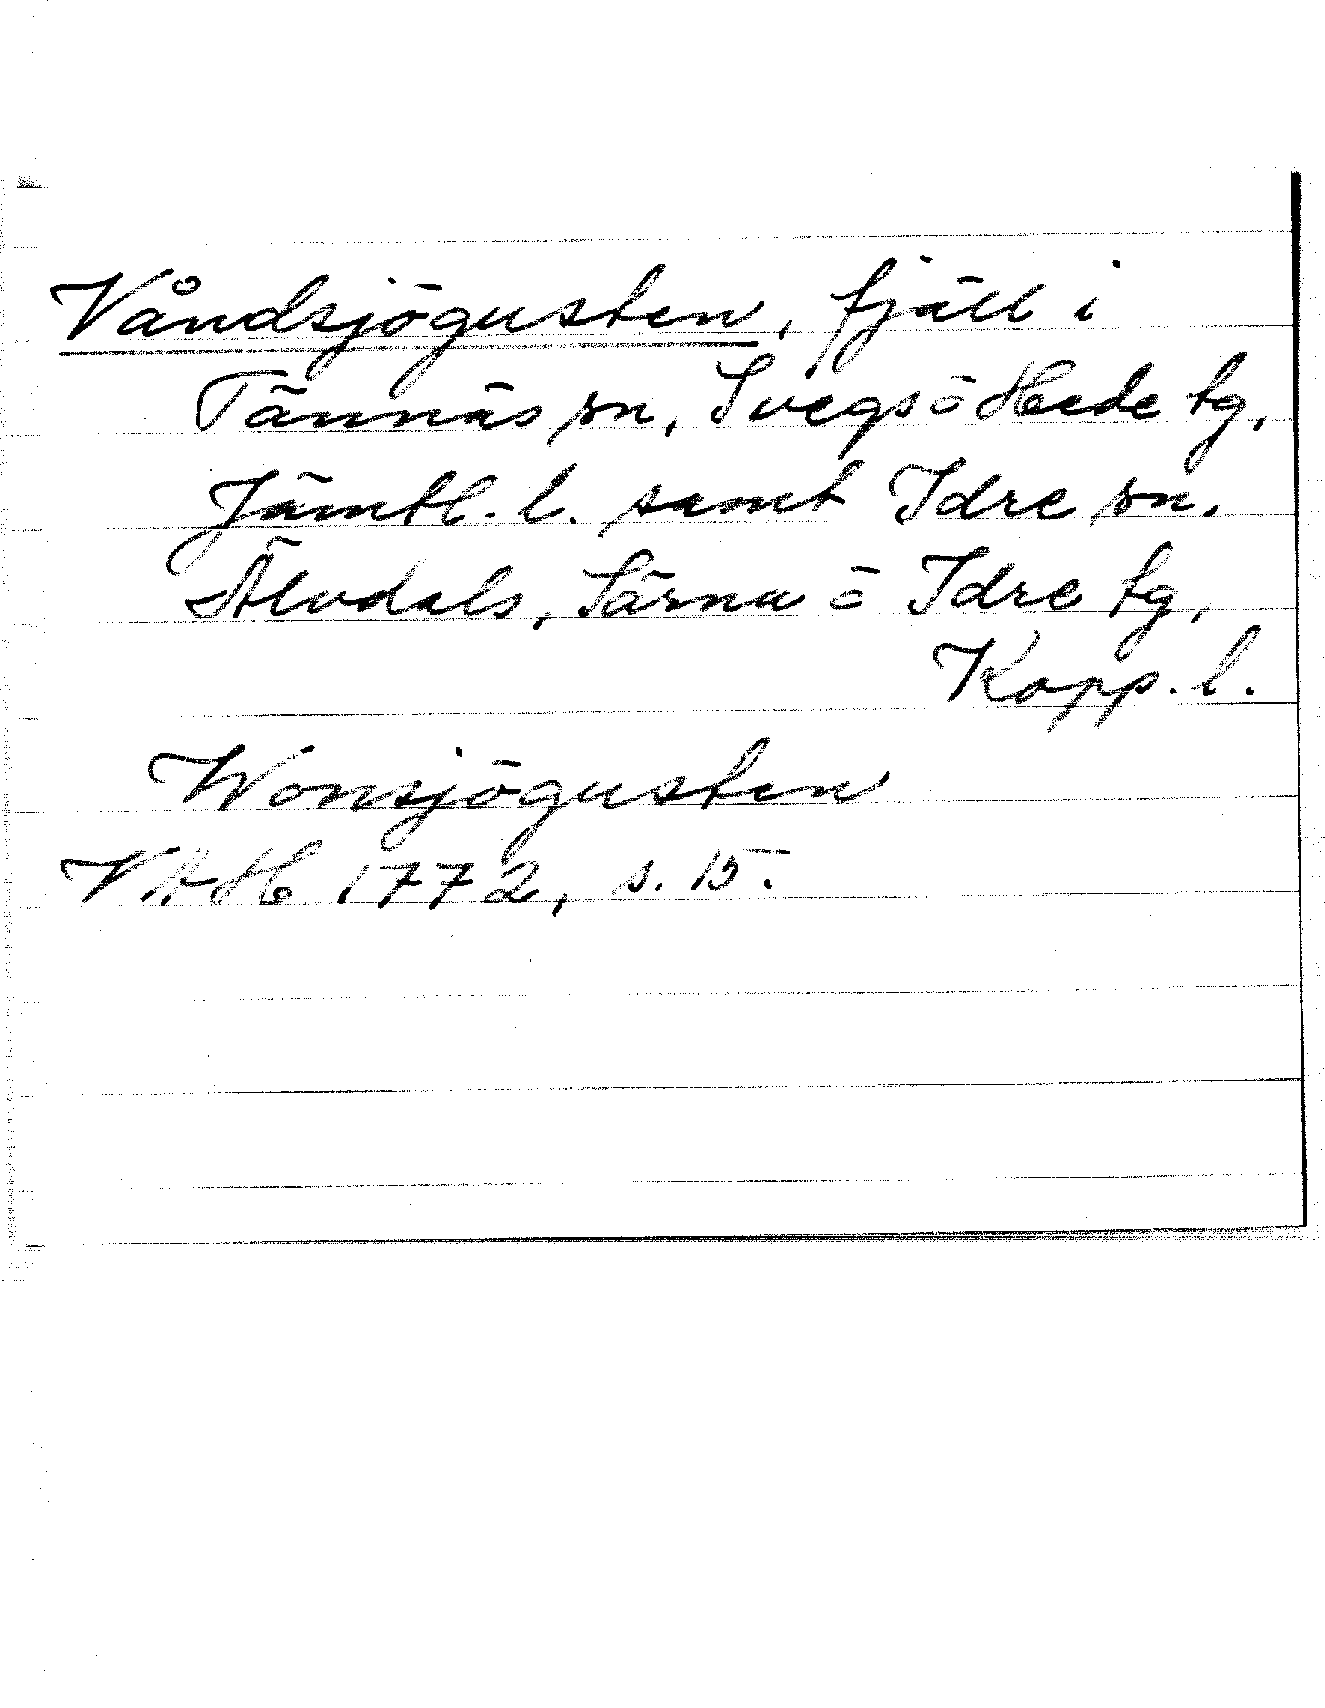 Våndsjögusten, fjäll i
Tännäs sn, Svegs o Hede tg,
Jämtl. l. samt Idre sn.
Älvdals, Särna o Idre tg,
Kopp. l.
Wonsjögusten
VAH 1772, s. 15.